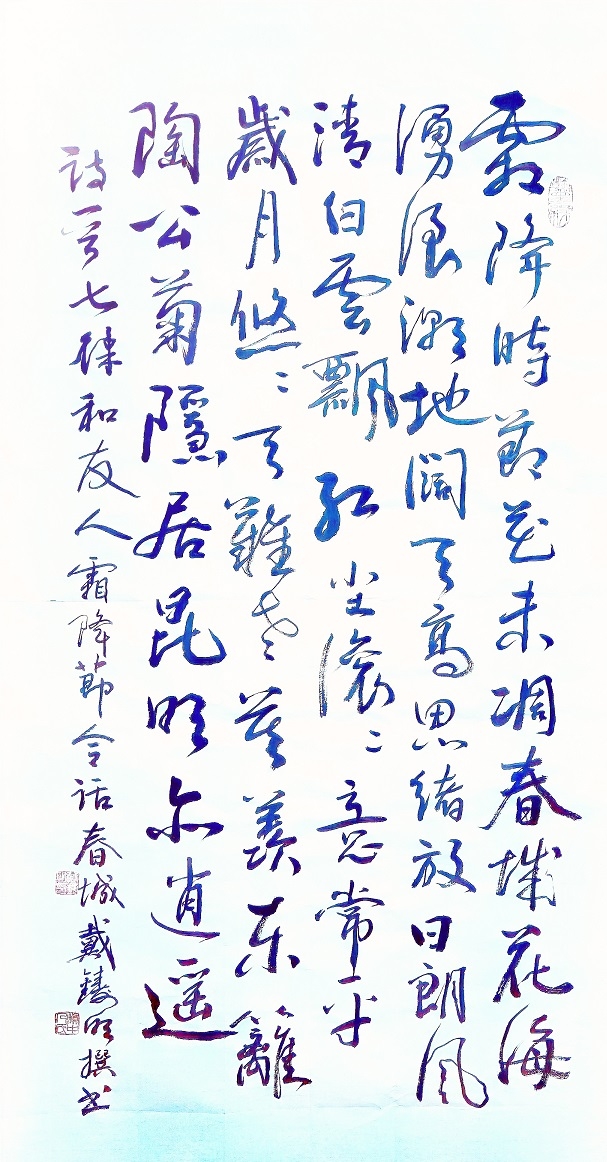 霜降時節花未凋春城花海
湧浪潮地闊天高思緒放日朗風
清白雲飄紅尘滚〻意常平
歲月悠〻天難老莫羨东籬
陶公菊隱居昆明亦逍遥
詩一首七律和友人霜降節令话春城戴鑄明撰书